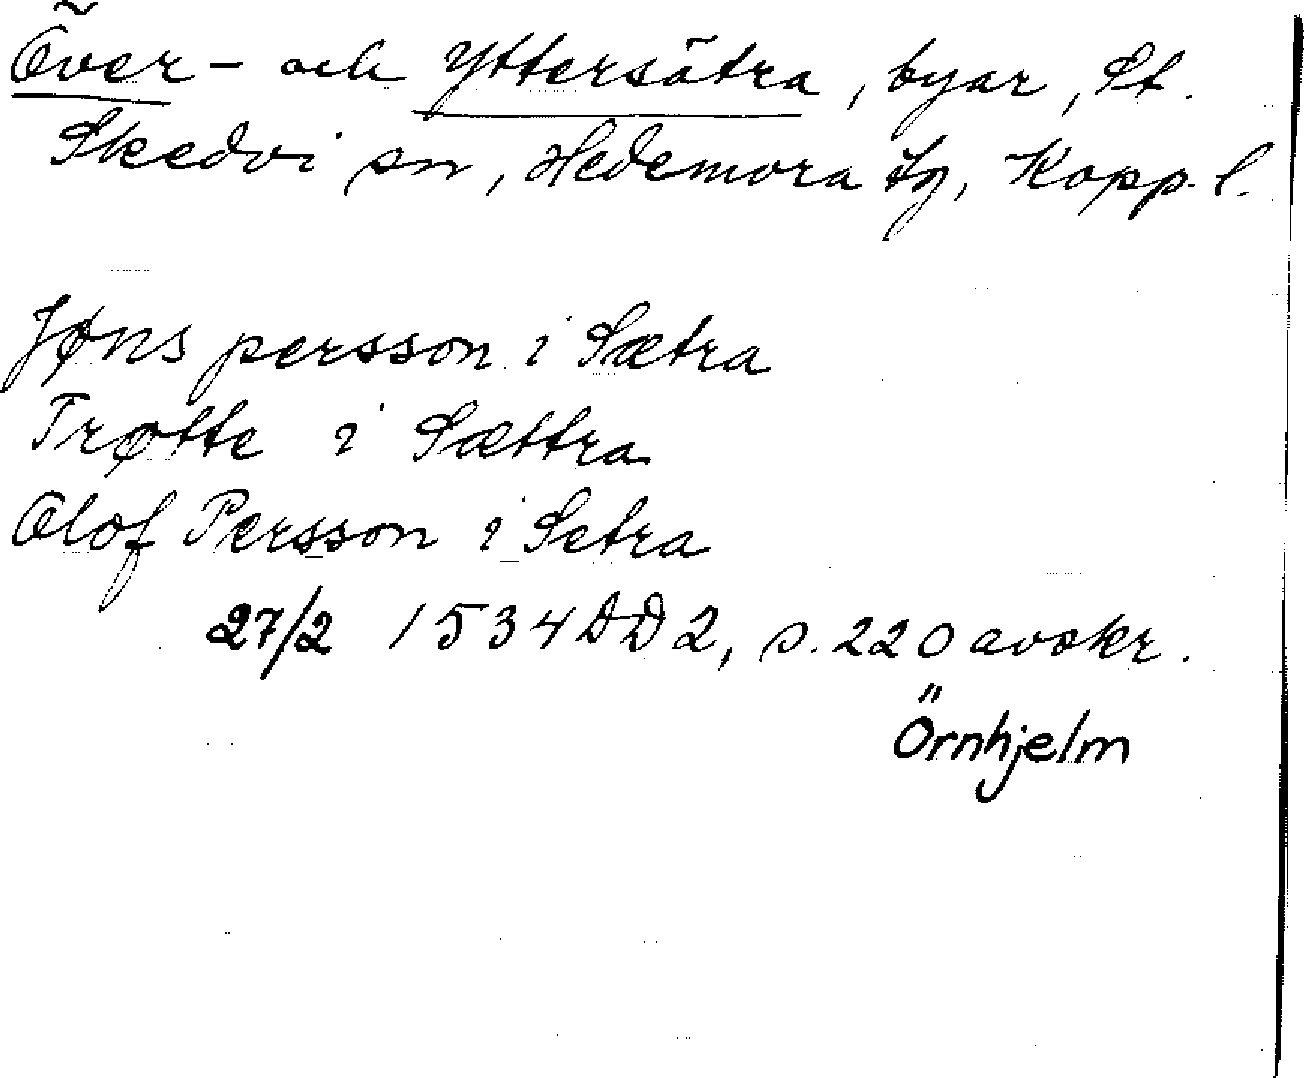 Över- och Yttersätra, byar, St.
Skedvi sn, Hedemora tg, Kopp. l.
Jøns persson i Sætra
Trøtte i Sættra
Olof Persson i Setra
27/2 1534 DD 2, s. 220 avskr.
Örnhjelm